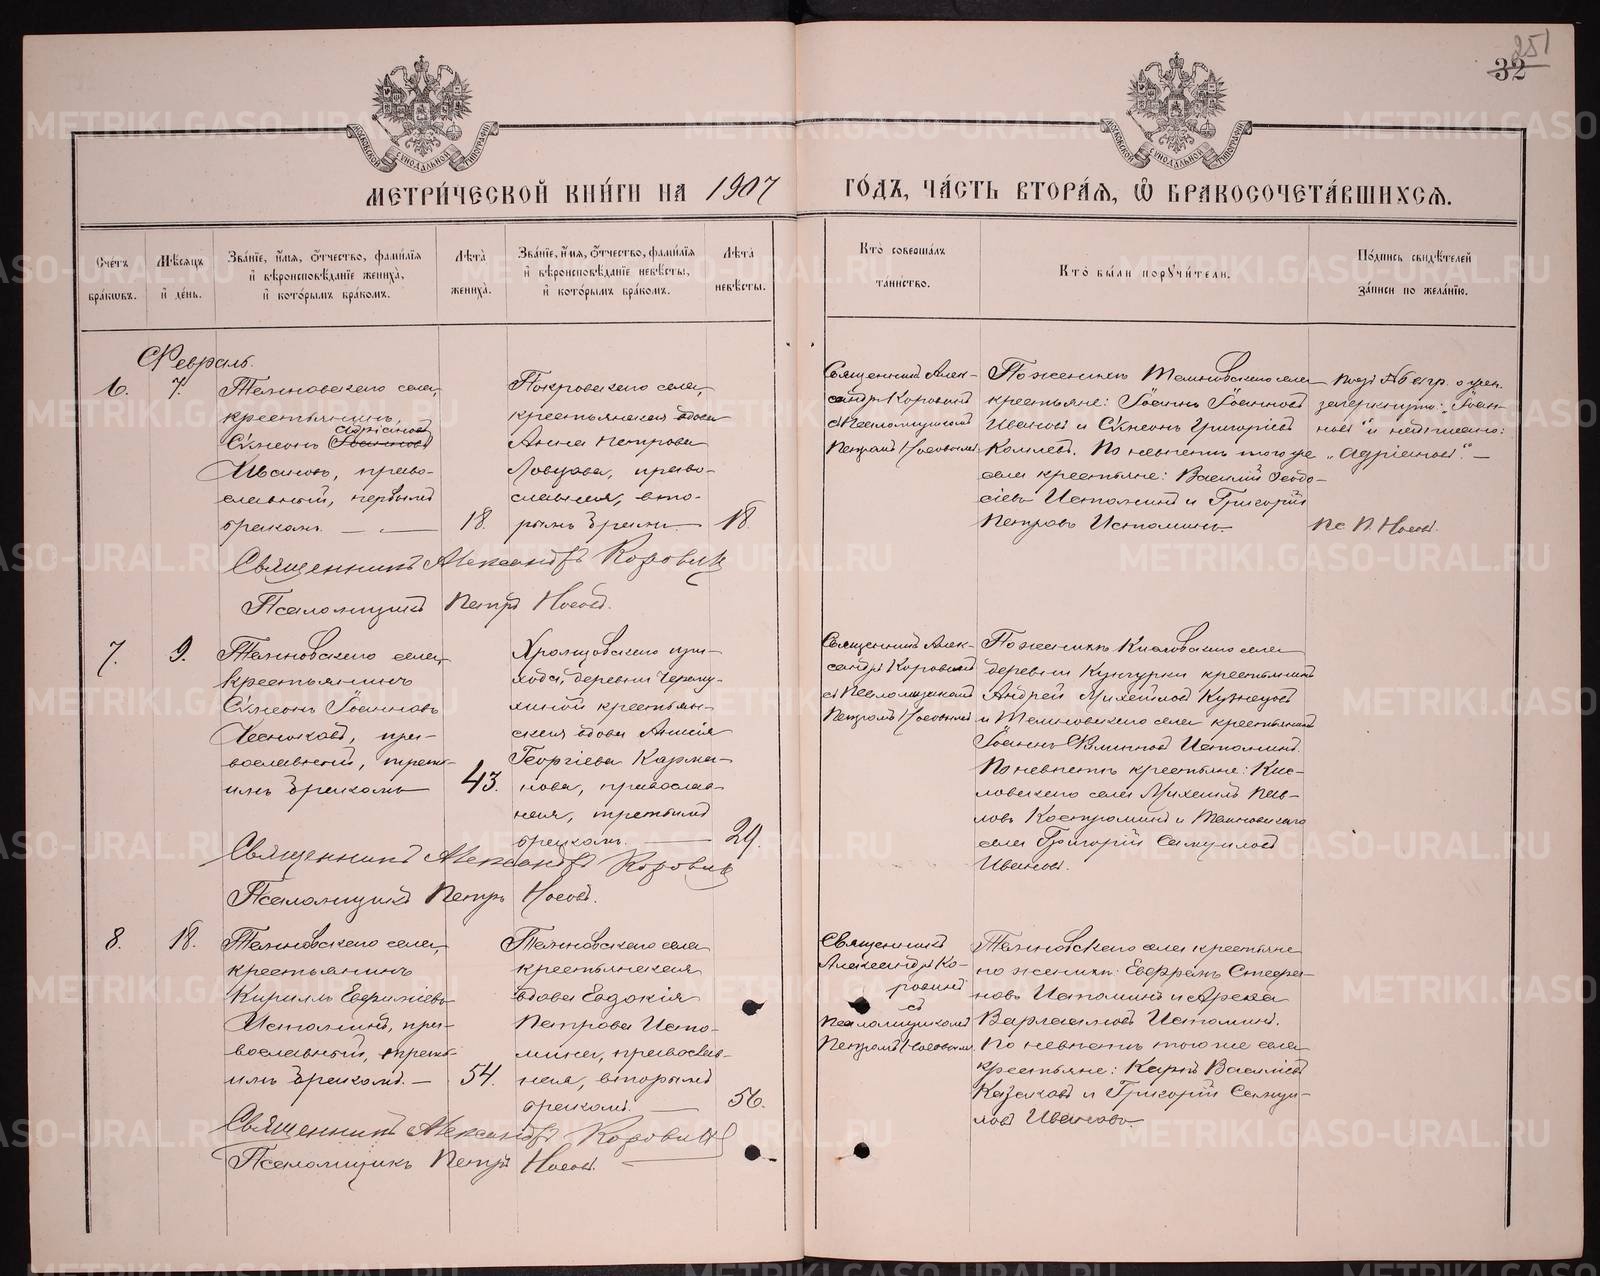 251
32
МОСКОВСКОЙ СѴНОДАЛЬНОЙ ТИПОГРАФІИ
МОСКОВСКОЙ СѴНОДАЛЬНОЙ ТИПОГРАФІИ
МЕТРИ́ЧЕСКОЙ КНИ́ГИ НА 1907
ГО́ДЪ, ЧА́СТЬ ВТОРА́Я, Ѽ БРАКОСОЧЕТА́ВШИХСЯ.
Сче́тъ бра́кѡвъ.
Мѣ́сяцъ и҆ де́нь.
Зва́нїе, и҆́мя, ѻ҆́тчество, фами́лїя
и҆ вѣроисповѣ́данїе жениха̀,
и҆ кото́рымъ бра́комъ.
Лѣ́та жениха̀.
Зва́нїе, и҆́мя, ѻ҆́тчество, фами́лїя
и҆ вѣроисповѣ́данїе невѣ́сты,
и҆ кото́рымъ бра́комъ.
Лѣ́та невѣ́сты.
Кто̀ соверша́лъ
та́инство.
Кто̀ бы́ли поручи́тели.
По́дпись свидѣ́телей
за́писи по жела́нїю.
Февраль.
6. 7.
Темновского села,
крестьянинъ,
Адріановъ
Сѵмеонъ Іоанновъ
Ивановъ, право-
славный, первымъ
бракомъ. 18.
Покровского села,
крестьянская вдова
Анна Петрова
Ловцова, право-
славная, вто-
рымъ бракомъ 18.
Священникъ Алек-
сандръ Коровинъ
съ Псаломщикомъ
Петромъ Носовымъ
По женихѣ Темновского села
крестьяне: Іоаннъ Іоанновъ
Ивановъ и Сѵмеонъ Григоріевъ
Комлевъ. По невѣстѣ того же
села крестьяне: Василій Ѳеодо-
сіевъ Истоминъ и Григорій
Петровъ Истоминъ
зачеркнуто: „Іоан-
новъ" и надписано:
„Адріановъ". —
Пс П. Носовъ.
Священникъ Александръ Коровинъ
Псаломщикъ Петръ Носовъ.
7. 9.
Темновского села,
крестьянинъ
Сѵмеонъ Іоанновъ
православный, треть-
имъ бракомъ 43.
Храмцовского при-
хода, деревни Черему-
хиной крестьян-
ская вдова Анисія
Георгіева Карма-
нова, православ-
ная, третьимъ
бракомъ. 29.
Священникъ Алек-
сандръ Коровинъ
съ Псаломщикомъ
Петромъ Носовымъ
По женихѣ Кисловского села
деревни Кунгурки крестьянинъ
Андрей Михайловъ Кузнецовъ
и Темновского села крестьянинъ
Іоаннъ Истоминъ.
По невѣстѣ крестьяне: Кис-
ловского села Михаилъ Пав-
ловъ Костроминъ и Темновского
села Григорій Самуиловъ
Ивановъ.
Священникъ Александръ Коровинъ
Псаломщикъ Петръ Носовъ.
8. 18.
Темновского села,
крестьянинъ
Кириллъ Евѳиміевъ
Истоминъ, пра-
вославный, треть-
имъ бракомъ. — 54.
Темновского села
крестьянская
вдова Евдокія
Петрова Исто-
мина, православ-
ная, вторымъ
бракомъ. — 56.
Священникъ
Александръ Ко-
ровинъ
съ
Псаломщикомъ
Петромъ Носовымъ
Темновского села крестьяне
по женихѣ: Евфремъ Стефа-
новъ Истоминъ и Арефа
Варлаамовъ Истоминъ.
По невѣстѣ того же села
крестьяне: Карпъ Василіевъ
Казаковъ и Григорій Самуи-
ловъ Ивановъ
Священникъ Александръ Коровинъ
Псаломщикъ Петръ Носовъ.
METRIKI.GASO-URAL.RU